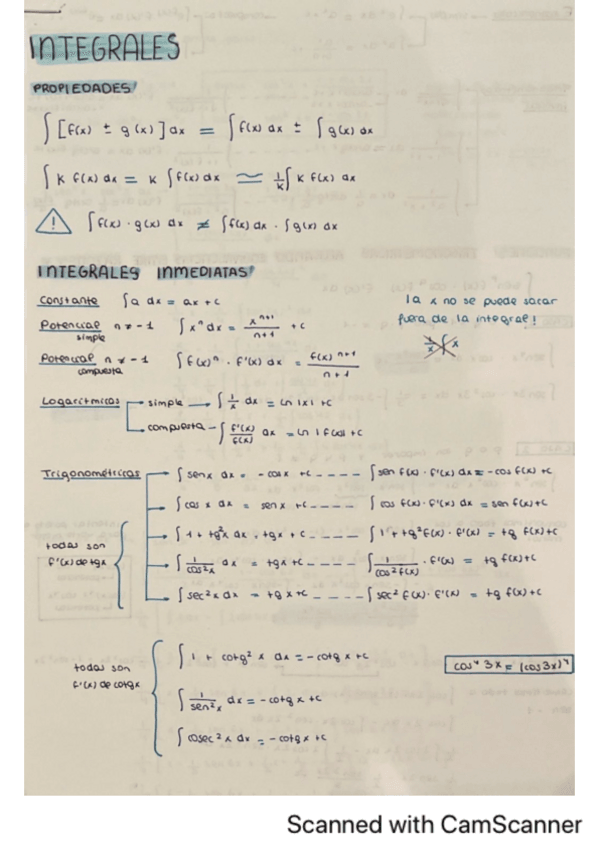 INTEGRALES
PROPIEDADES
∫ [f(x) ± g(x)] dx = ∫ f(x) dx ± ∫ g(x) dx
∫ K f(x) dx = K ∫ f(x) dx ≃ 1/K ∫ K f(x) dx
⚠ ∫ f(x) · g(x) dx ≠ ∫ f(x) dx · ∫ g(x) dx
INTEGRALES INMEDIATAS
Constante ∫ a dx = ax + c
la x no se puede sacar
fuera de la integral!
Potencial simple n ≠ -1 ∫ xⁿ dx = xⁿ⁺¹/n+1 + c
1/x ∫ x
Potencial compuesta n ≠ -1 ∫ f(x)ⁿ · f'(x) dx = f(x)ⁿ⁺¹/n+1
Logarítmicas simple → ∫ 1/x dx = Ln |x| + c
compuesta - ∫ f'(x)/f(x) dx = Ln |f(x)| + c
Trigonométricas → ∫ senx dx = - cosx + c ---- ∫ sen f(x) · f'(x) dx = - cos f(x) + c
∫ cos x dx = sen x + c ---- ∫ cos f(x) · f'(x) dx = sen f(x) + c
∫ 1 + tg²x dx = tgx + c ---- ∫ 1 + tg² f(x) · f'(x) = tg f(x) + c
todas son
f'(x) de tgx
∫ 1/cos²x dx = tgx + c ---- ∫ 1/cos² f(x) · f'(x) = tg f(x) + c
∫ sec²x dx = tg x + c ---- ∫ sec² f(x) · f'(x) = tg f(x) + c
∫ 1 + cotg² x dx = - cotg x + c
todas son
f'(x) de cotgx
cos⁴ 3x = (cos 3x)⁴
∫ 1/sen²x dx = - cotg x + c
∫ cosec² x dx = - cotg x + c
Scanned with CamScanner